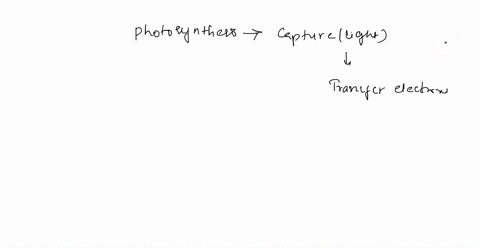 Photosynthess → Capture (light)
↓
Transfer electron